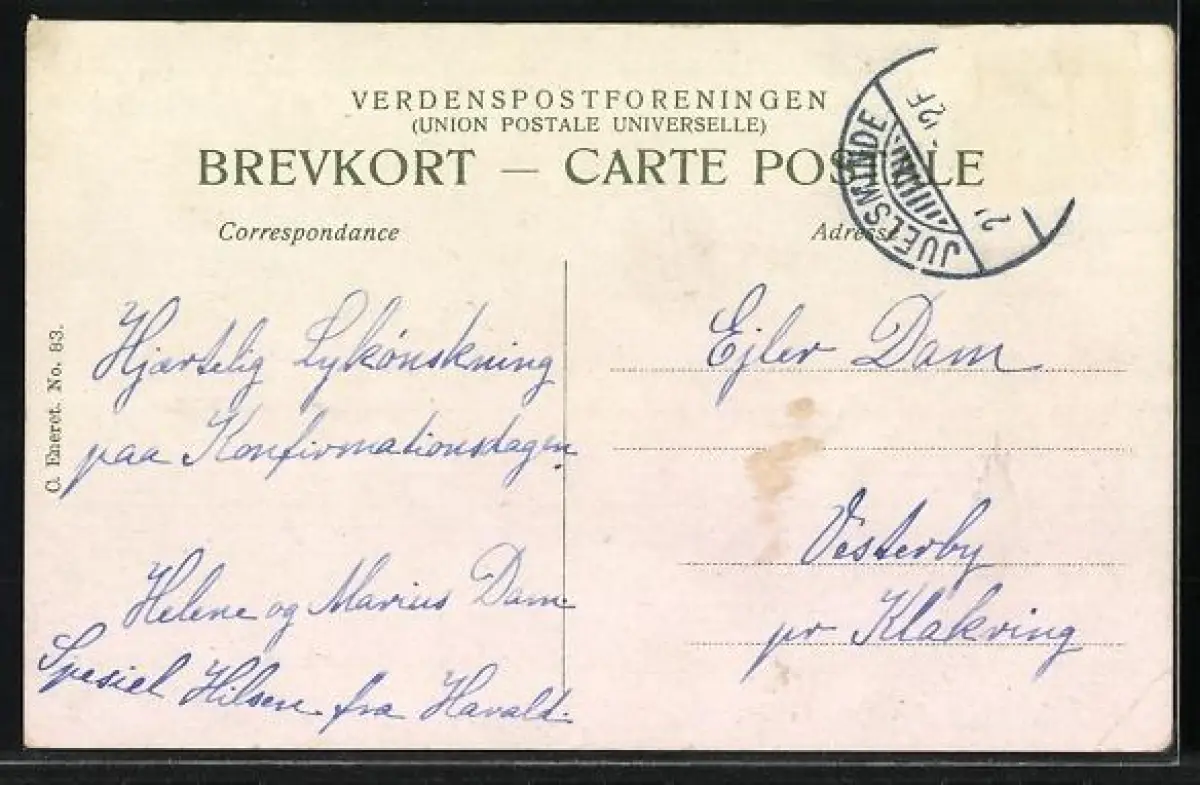 VERDENSPOSTFORENINGEN
(UNION POSTALE UNIVERSELLE)
BREVKORT — CARTE POSTALE
Correspondance
Adresse
JUELSMINDE
C. Eneret. No. 83.
Hjærtelig Lykønskning
paa Konfirmationsdagen
Helene og Marius Dam
Spesiel Hilsen fra Harald.
Ejler Dam
Vesterby
pr Klakring